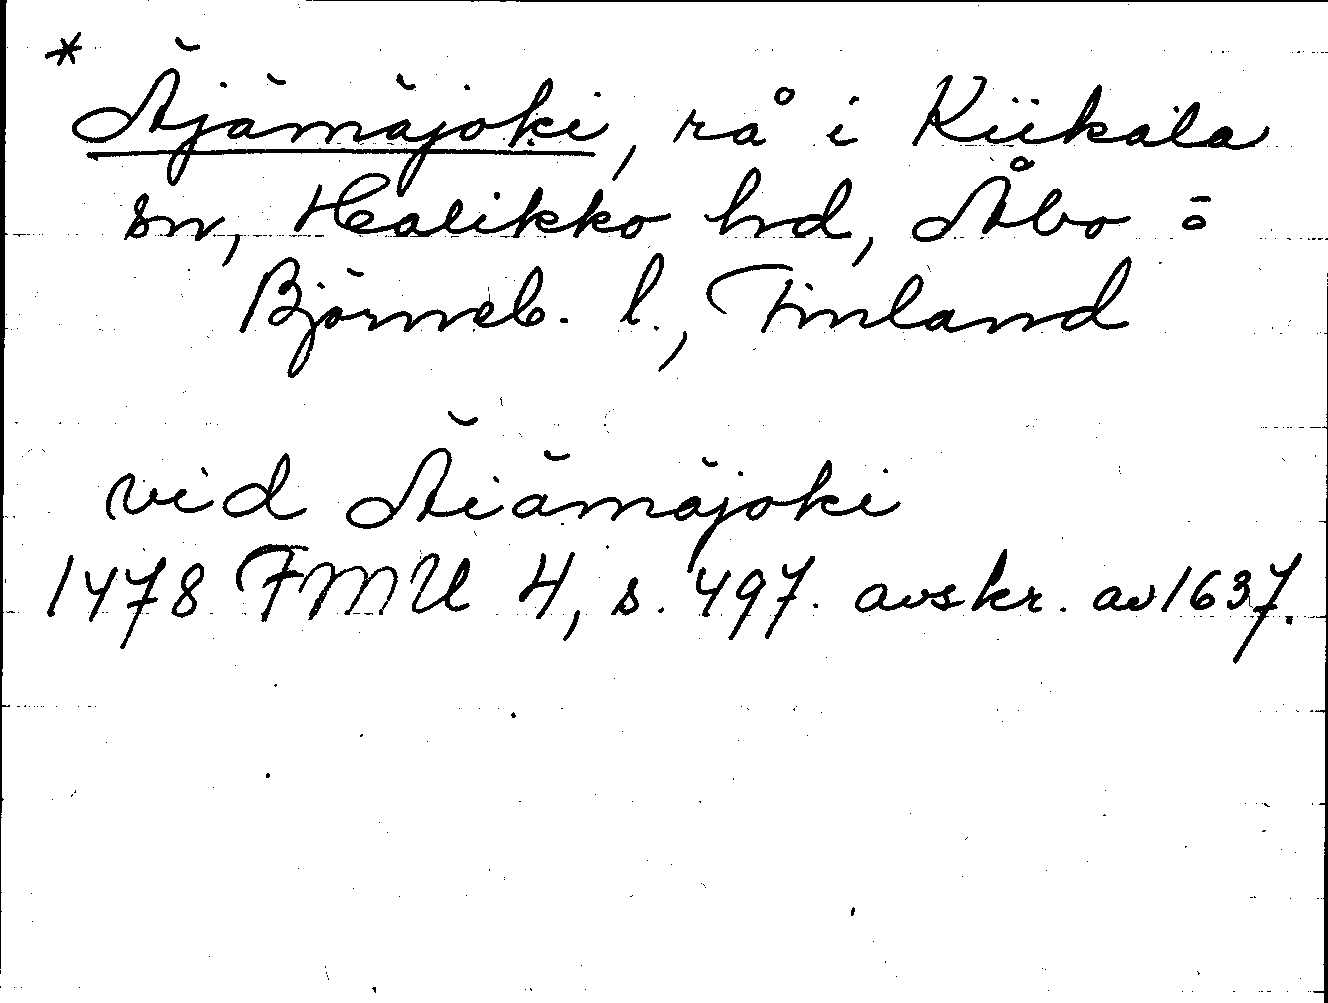 *
Äjämäjoki, rå i Kiikala
sn, Halikko hd, Åbo o
Björneb. l., Finland
vid Äiämäjoki
1478 FMU 4, s. 497. avskr. av 1637.